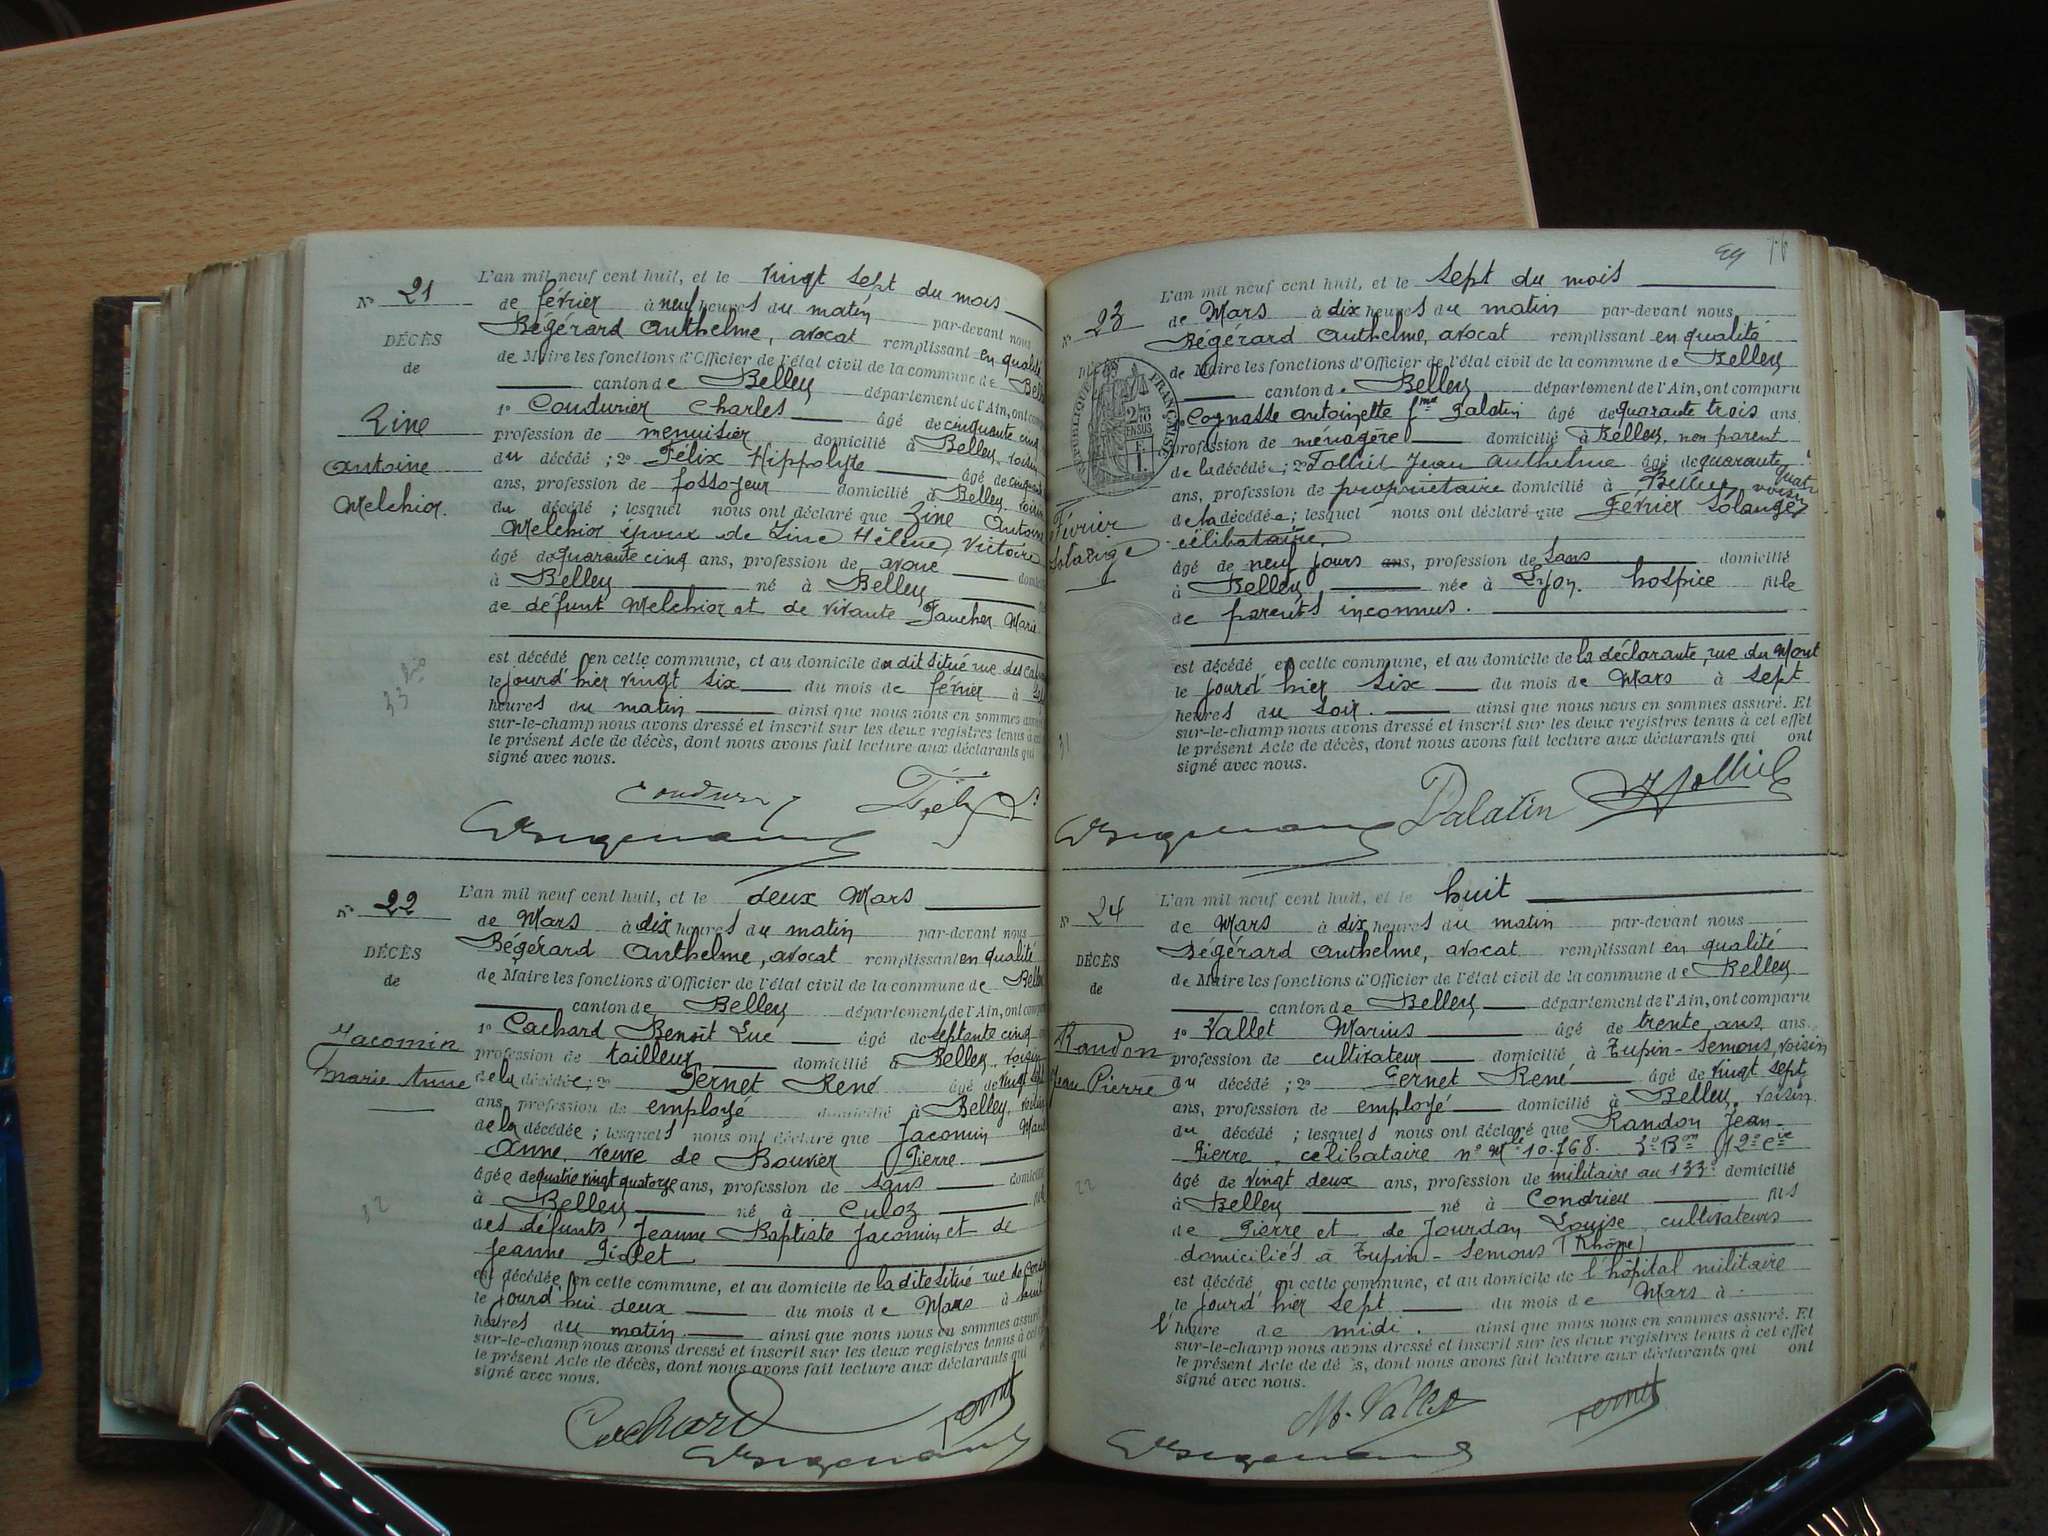 Nº 21
DÉCÈS
de
Zine
Antoine
Melchior.
L'an mil neuf cent huit, et le vingt sept du mois
de février à neuf heures du matin par-devant nous
Bégérard Anthelme, avocat remplissant en qualité
de Maire les fonctions d'Officier de l'état civil de la commune de Bell
canton de Belley département de l'Ain, ont comp
1º Coudurier Charles âgé de cinquante cinq
profession de menuisier domicilié à Belley, voisin
du décédé ; 2º Félix Hippolyte âgé de
ans, profession de fossoyeur domicilié à Belley, voisin
du décédé ; lesquel nous ont déclaré que Zine Antoine
Melchior époux de Zine Hélène Victoire
âgé de quarante cinq ans, profession de avoué
à Belley né à Belley
de défunt Melchior et de vivante Faucher Marie
est décédé en cette commune, et au domicile du dit situé rue des
le jourd'hier vingt six du mois de février à
heures du matin ainsi que nous nous en sommes assuré
sur-le-champ nous avons dressé et inscrit sur les deux registres tenus à cet
le présent Acte de décès, dont nous avons fait lecture aux déclarants qui
signé avec nous.
Nº 22
DÉCÈS
de
Jacomin
Marie Anne
L'an mil neuf cent huit, et le deux Mars
de Mars à dix heures du matin par-devant nous
Bégérard Anthelme, avocat remplissant en qualité
de Maire les fonctions d'Officier de l'état civil de la commune de Bell
canton de Belley département de l'Ain, ont comp
1º Cachard Benoît Luc âgé de septante cinq
profession de tailleur domicilié à Belley, voisin
de la décédée ; 2º Pernet René âgé de vingt sept
ans, profession de employé domicilié à Belley, voisin
de la décédée ; lesquels nous ont déclaré que Jacomin Marie
Anne, veuve de Bouvier Pierre
âgée de quatre vingt quatorze ans, profession de sans domicilié
à Belley né à Culoz
des défunts Jeanne Baptiste Jacomin et de
Jeanne
est décédée en cette commune, et au domicile de la dite situé rue de
le jourd'hui deux du mois de Mars à huit
heures du matin. ainsi que nous nous en sommes assuré
sur-le-champ nous avons dressé et inscrit sur les deux registres tenus à cet
le présent Acte de décès, dont nous avons fait lecture aux déclarants qui
signé avec nous.
Cachard Pernet
99 76
Nº 23
RÉPUBLIQUE FRANÇAISE
Février
Solange
L'an mil neuf cent huit, et le sept du mois
de Mars à dix heures du matin par-devant nous
Bégérard Anthelme, avocat remplissant en qualité
de Maire les fonctions d'Officier de l'état civil de la commune de Belley
canton de Belley département de l'Ain, ont comparu
Cognasse Antoinette fme Palatin âgé de quarante trois ans
profession de ménagère domicilié à Belley, non parent
de la décédée ; 2º Tolliet Jean Anthelme âgé de quarante quatre
ans, profession de propriétaire domicilié à Belley voisin
de la décédée ; lesquel nous ont déclaré que Février Solange
célibataire,
âgé de neuf jours ans, profession de sans domicilié
à Belley née à Lyon, hospice fille
de parents inconnus.
est décédé en cette commune, et au domicile de la déclarante, rue du Mont
le jourd'hier six du mois de Mars à sept
heures du soir. ainsi que nous nous en sommes assuré. Et
sur-le-champ nous avons dressé et inscrit sur les deux registres tenus à cet effet
le présent Acte de décès, dont nous avons fait lecture aux déclarants qui ont
signé avec nous.
Palatin Tolliet
Nº 24
DÉCÈS
de
Randon
Jean Pierre
L'an mil neuf cent huit, et le huit
de Mars à dix heures du matin par-devant nous
Bégérard Anthelme, avocat remplissant en qualité
de Maire les fonctions d'Officier de l'état civil de la commune de Belley
canton de Belley département de l'Ain, ont comparu
1º Vallet Marius âgé de trente ans ans
profession de cultivateur domicilié à Tupin-Semons, voisin
du décédé ; 2º Pernet René âgé de vingt sept
ans, profession de employé domicilié à Belley, voisin
du décédé ; lesquels nous ont déclaré que Randon Jean-
Pierre, célibataire nº Mle 10.768. 3º Bon 12º Cie
âgé de vingt deux ans, profession de militaire au 133º domicilié
à Belley né à Condrieu fils
de Pierre et de Jourdan Louise, cultivateurs
domiciliés à Tupin-Semons (Rhône)
est décédé en cette commune, et au domicile de l'hôpital militaire
le jourd'hier sept du mois de Mars à
l'heure de midi. ainsi que nous nous en sommes assuré. Et
sur-le-champ nous avons dressé et inscrit sur les deux registres tenus à cet effet
le présent Acte de décès, dont nous avons fait lecture aux déclarants qui ont
signé avec nous.
M. Vallet Pernet